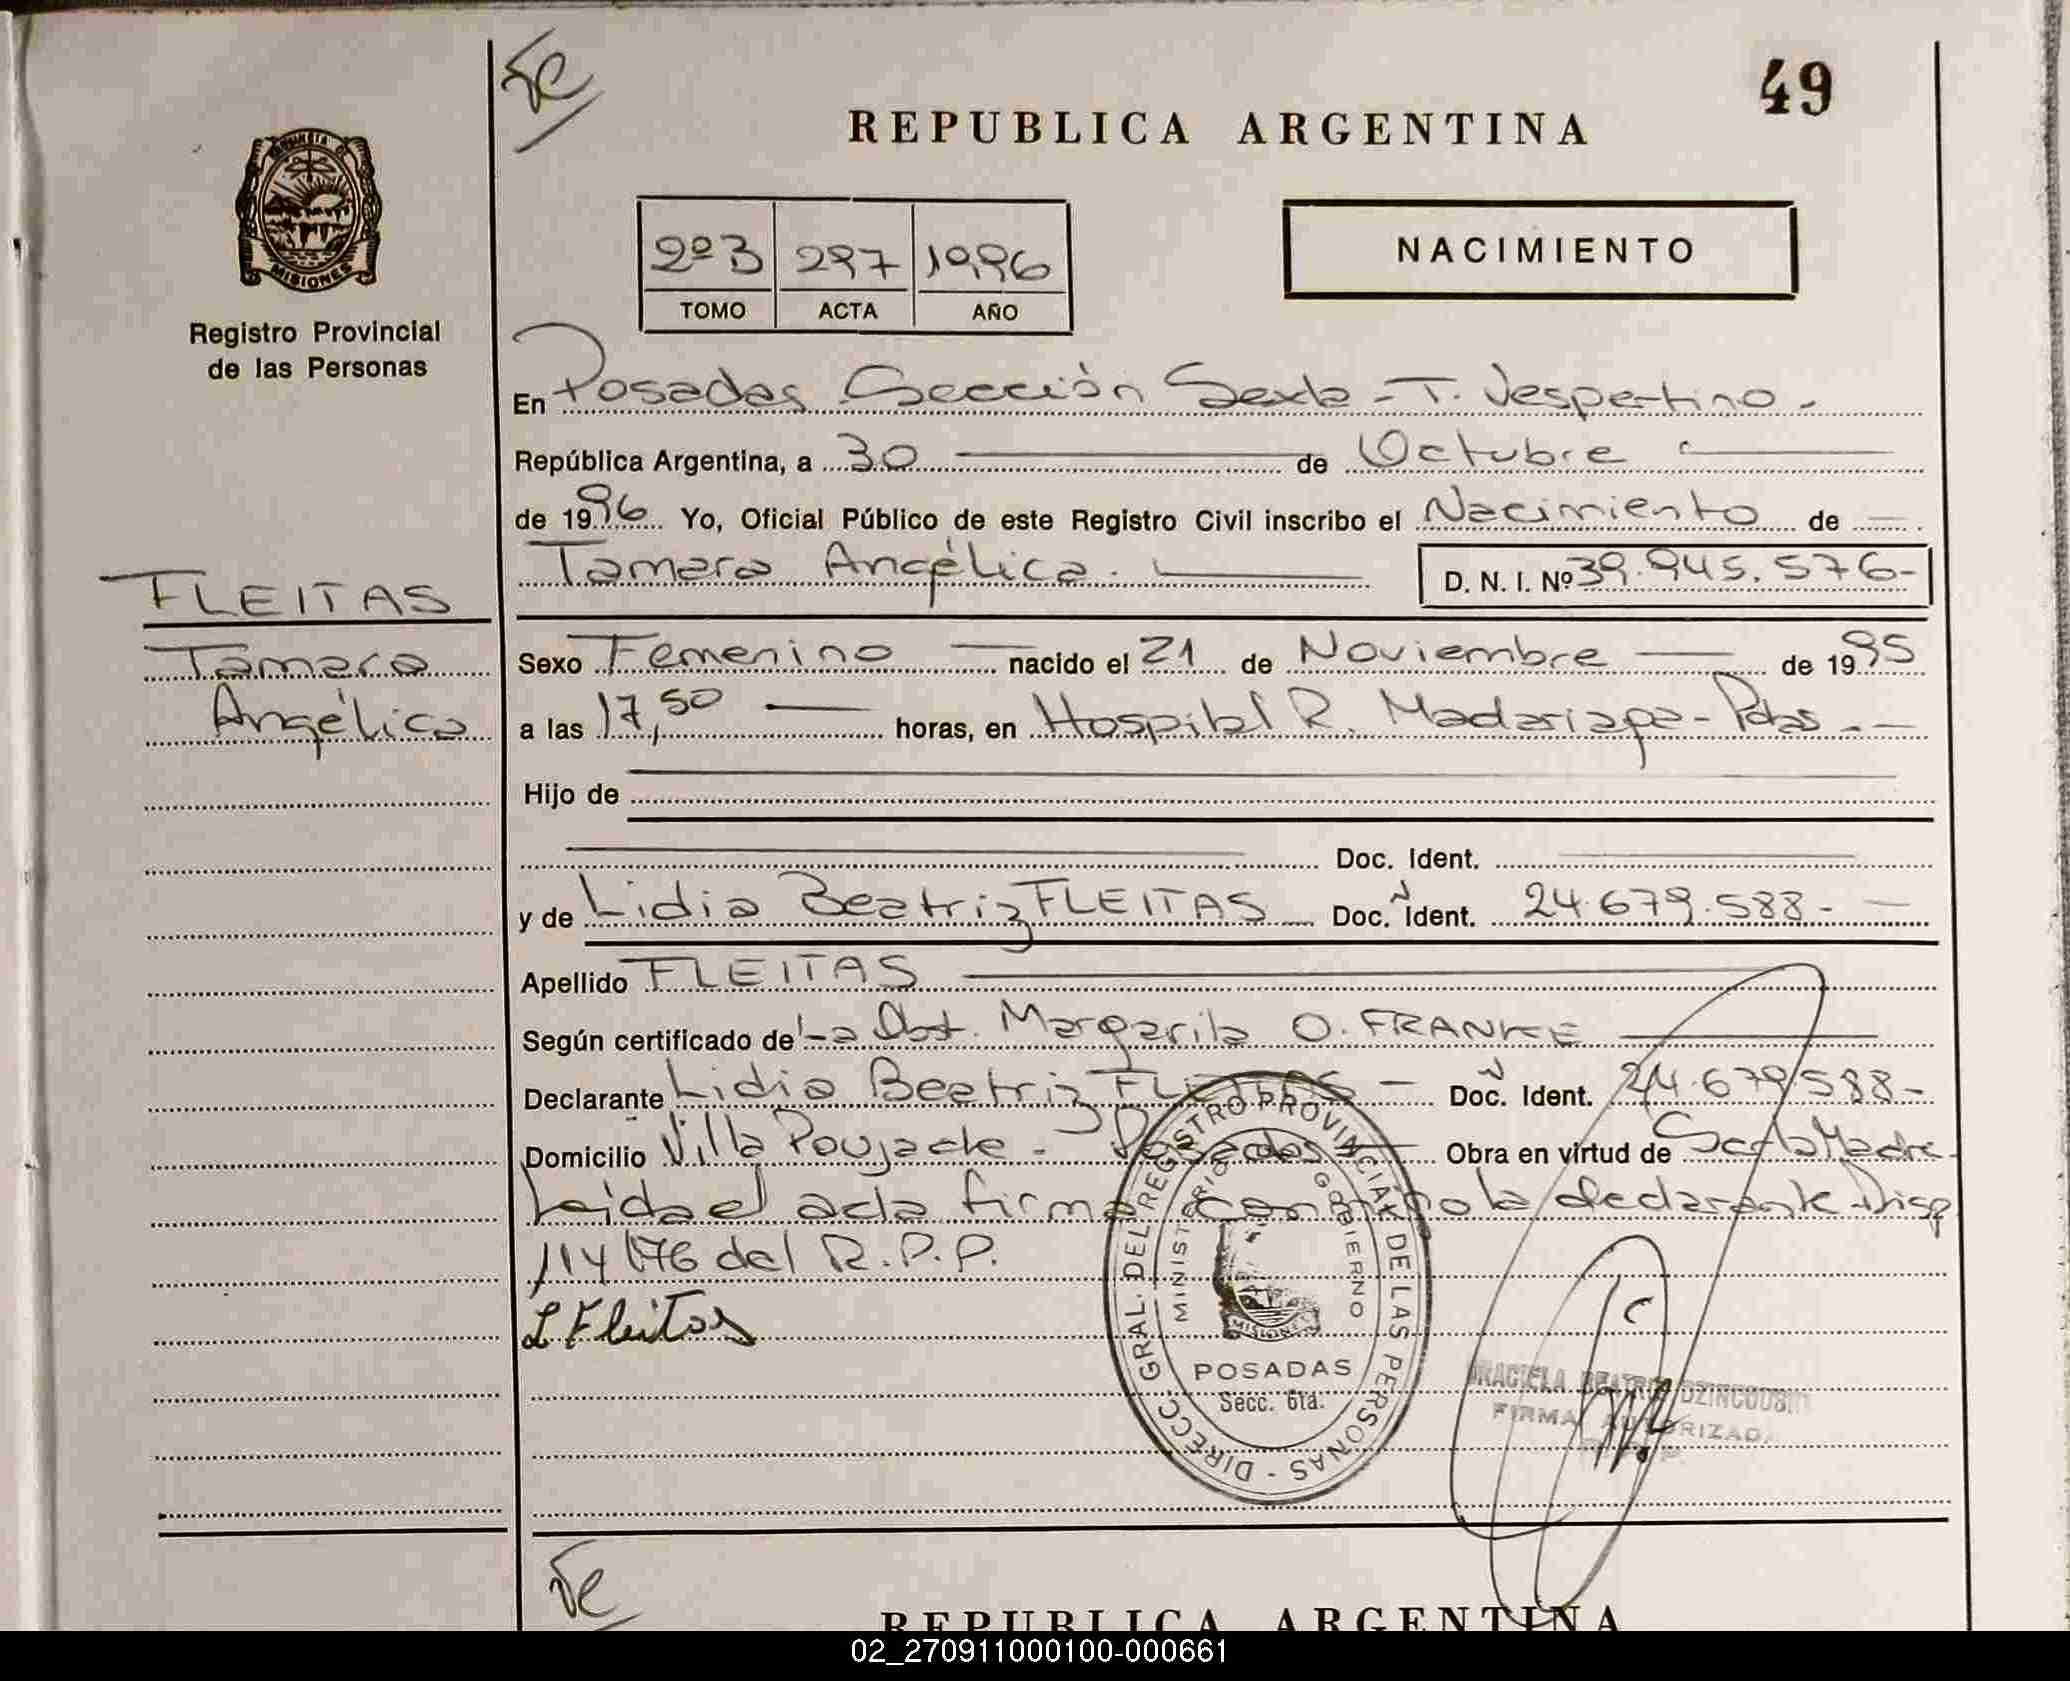 49
REPUBLICA ARGENTINA
PROVINCIA DE
MISIONES
Registro Provincial
de las Personas
2º B 297 1996
TOMO ACTA AÑO
NACIMIENTO
En Posadas Sección Sexta - T. Vespertino.
República Argentina, a 30 de Octubre
de 1996 Yo, Oficial Público de este Registro Civil inscribo el Nacimiento de
Tamara Angélica. D. N. I. Nº 39.945.576-
FLEITAS
Tamara
Angélica
Sexo Femenino nacido el 21 de Noviembre de 1995
a las 17,50 horas, en Hospital R. Madariaga - Pdas.
Hijo de
Doc. Ident.
y de Lidia Beatriz FLEITAS Doc. Ident. 24.679.588-
Apellido FLEITAS
Según certificado de La Obst. Margarita O. FRANKE
Declarante Lidia Beatriz FLEITAS - Doc. Ident. 24.679.588-
Domicilio Villa Poujade - Posadas Obra en virtud de Madre
Leida el acta firma conmigo la declarante Disp
114/76 del R.P.P.
L Fleitas
DIRECC. GRAL. DEL REGISTRO PROVINCIAL DE LAS PERSONAS -
MINISTERIO GOBIERNO
MISIONES
POSADAS
Secc. 6ta.
GRACIELA BEATRIZ
FIRMA AUTORIZADA
REPUBLICA ARGENTINA
02_270911000100-000661